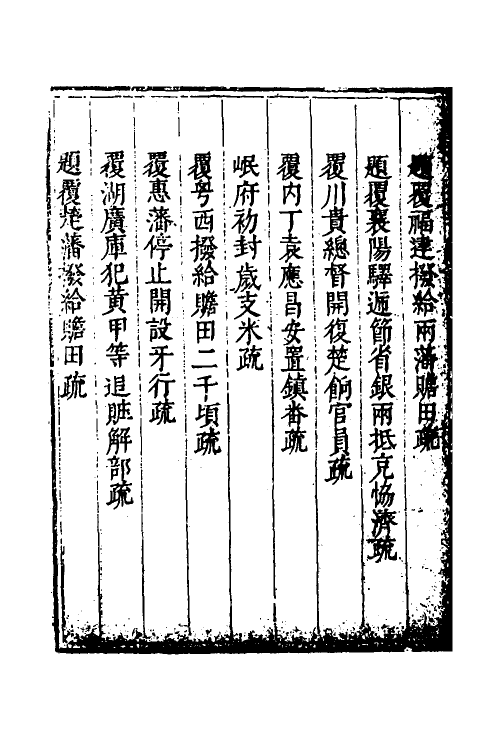 題覆福建撥給兩藩贍田疏
題覆襄陽驛遞節省銀兩抵充恊濟疏
覆川貴總督開復楚餉官員疏
覆内丁袁應昌安置鎮番疏
岷府初封歲支米疏
覆粤西撥給贍田二千頃疏
覆惠藩停止開設牙行疏
覆湖廣庫犯黄甲等追賍解部疏
題覆撥給贍田疏